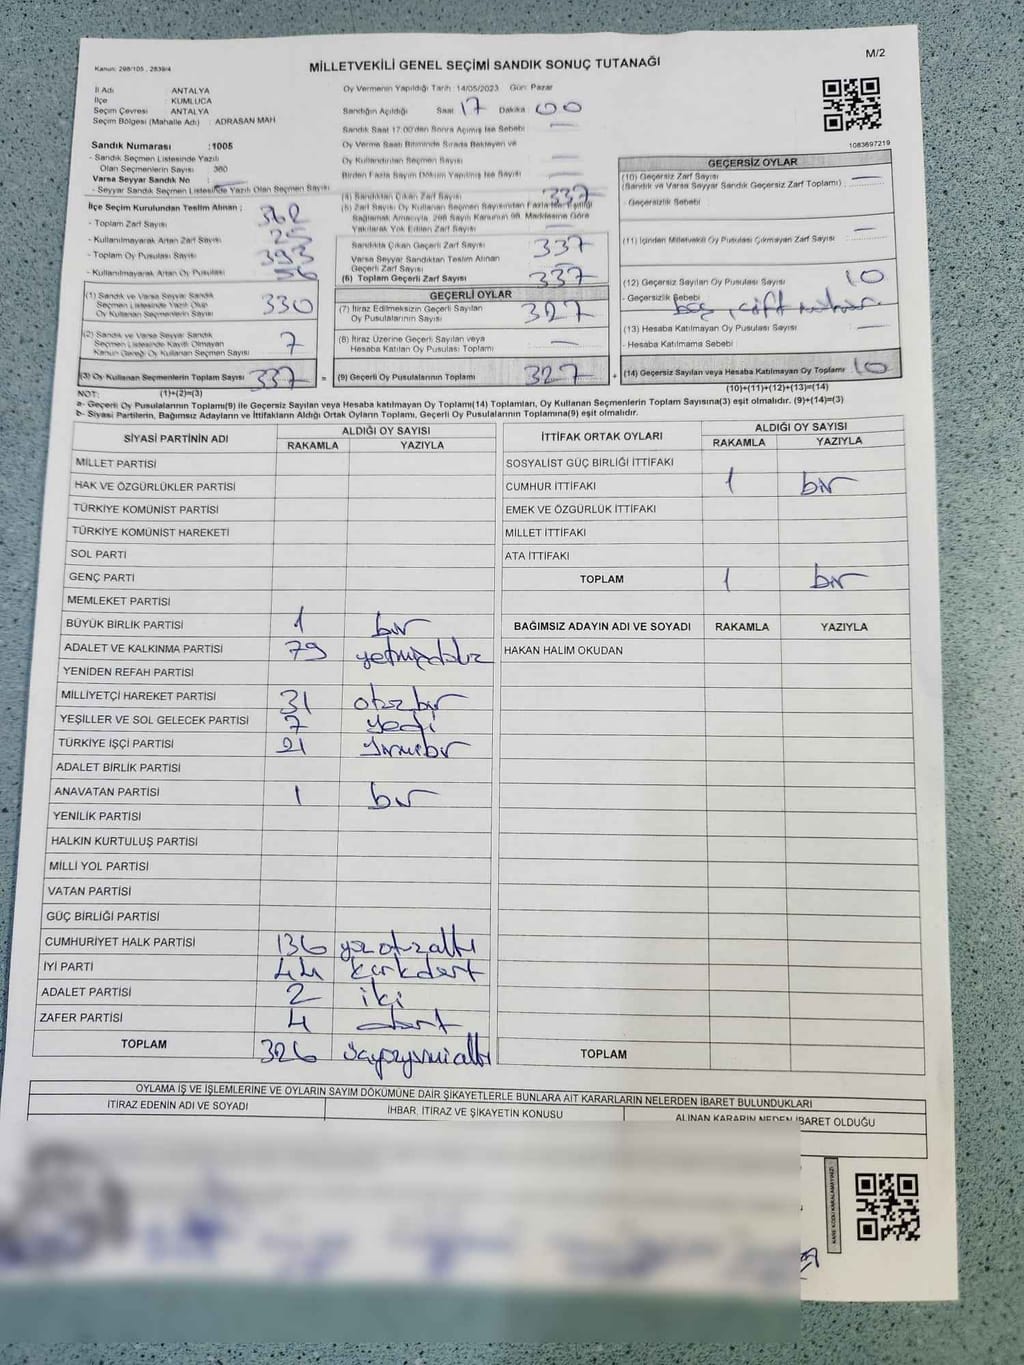 M/2
Kanun: 298/105 , 2839/4
MİLLETVEKİLİ GENEL SEÇİMİ SANDIK SONUÇ TUTANAĞI
İl Adı ANTALYA
İlçe KUMLUCA
Seçim Çevresi ANTALYA
Seçim Bölgesi (Mahalle Adı) : ADRASAN MAH.
Sandık Numarası :1005
- Sandık Seçmen Listesinde Yazılı
Olan Seçmenlerin Sayısı : 360
Varsa Seyyar Sandık No :
- Seyyar Sandık Seçmen Listesinde Yazılı Olan Seçmen Sayısı
İlçe Seçim Kurulundan Teslim Alınan ;
- Toplam Zarf Sayısı 362
- Kullanılmayarak Artan Zarf Sayısı 25
- Toplam Oy Pusulası Sayısı 393
- Kullanılmayarak Artan Oy Pusulası 56
(1) Sandık ve Varsa Seyyar Sandık
Seçmen Listesinde Yazılı Olup
Oy Kullanan Seçmenlerin Sayısı 330
(2) Sandık ve Varsa Seyyar Sandık
Seçmen Listesinde Kayıtlı Olmayan
Kanun Gereği Oy Kullanan Seçmen Sayısı 7
(3) Oy Kullanan Seçmenlerin Toplam Sayısı 337 =
Oy Vermenin Yapıldığı Tarih :14/05/2023 Gün: Pazar
Sandığın Açıldığı Saat 17 Dakika 00
Sandık Saat 17:00'den Sonra Açılmış İse Sebebi —
Oy Verme Saati Bitiminde Sırada Bekleyen ve
Oy Kullandırılan Seçmen Sayısı —
Birden Fazla Sayım Döküm Yapılmış İse Sayısı —
(4) Sandıktan Çıkan Zarf Sayısı 337
(5) Zarf Sayısı Oy Kullanan Seçmen Sayısından Fazla İse Eşitliği
Sağlamak Amacıyla, 298 Sayılı Kanunun 98. Maddesine Göre
Yakılarak Yok Edilen Zarf Sayısı —
Sandıkta Çıkan Geçerli Zarf Sayısı 337
Varsa Seyyar Sandıktan Teslim Alınan
Geçerli Zarf Sayısı —
(6) Toplam Geçerli Zarf Sayısı 337
GEÇERLİ OYLAR
(7) İtiraz Edilmeksizin Geçerli Sayılan
Oy Pusulalarının Sayısı 327
(8) İtiraz Üzerine Geçerli Sayılan veya
Hesaba Katılan Oy Pusulası Toplamı —
(9) Geçerli Oy Pusulalarının Toplamı 327 +
1083697219
GEÇERSİZ OYLAR
(10) Geçersiz Zarf Sayısı —
(Sandık ve Varsa Seyyar Sandık Geçersiz Zarf Toplamı)
- Geçersizlik Sebebi
(11) İçinden Milletvekili Oy Pusulası Çıkmayan Zarf Sayısı —
(12) Geçersiz Sayılan Oy Pusulası Sayısı 10
- Geçersizlik Sebebi boş , çift mühür
(13) Hesaba Katılmayan Oy Pusulası Sayısı —
- Hesaba Katılmama Sebebi
(14) Geçersiz Sayılan veya Hesaba Katılmayan Oy Toplamı 10
NOT: (1)+(2)=(3) (10)+(11)+(12)+(13)=(14)
a- Geçerli Oy Pusulalarının Toplamı(9) ile Geçersiz Sayılan veya Hesaba Katılmayan Oy Toplamı(14) Toplamları, Oy Kullanan Seçmenlerin Toplam Sayısına(3) eşit olmalıdır. (9)+(14)=(3)
b- Siyasi Partilerin, Bağımsız Adayların ve İttifakların Aldığı Ortak Oyların Toplamı, Geçerli Oy Pusulalarının Toplamına(9) eşit olmalıdır.
SİYASİ PARTİNİN ADI ALDIĞI OY SAYISI
RAKAMLA YAZIYLA
MİLLET PARTİSİ
HAK VE ÖZGÜRLÜKLER PARTİSİ
TÜRKİYE KOMÜNİST PARTİSİ
TÜRKİYE KOMÜNİST HAREKETİ
SOL PARTİ
GENÇ PARTİ
MEMLEKET PARTİSİ
BÜYÜK BİRLİK PARTİSİ 1 bir
ADALET VE KALKINMA PARTİSİ 79 yetmişdokuz
YENİDEN REFAH PARTİSİ
MİLLİYETÇİ HAREKET PARTİSİ 31 otuzbir
YEŞİLLER VE SOL GELECEK PARTİSİ 7 yedi
TÜRKİYE İŞÇİ PARTİSİ 21 yirmibir
ADALET BİRLİK PARTİSİ
ANAVATAN PARTİSİ 1 bir
YENİLİK PARTİSİ
HALKIN KURTULUŞ PARTİSİ
MİLLİ YOL PARTİSİ
VATAN PARTİSİ
GÜÇ BİRLİĞİ PARTİSİ
CUMHURİYET HALK PARTİSİ 136 yüzotuzaltı
İYİ PARTİ 44 kırkdört
ADALET PARTİSİ 2 iki
ZAFER PARTİSİ 4 dört
TOPLAM 326 üçyüzyirmialtı
İTTİFAK ORTAK OYLARI ALDIĞI OY SAYISI
RAKAMLA YAZIYLA
SOSYALİST GÜÇ BİRLİĞİ İTTİFAKI
CUMHUR İTTİFAKI 1 bir
EMEK VE ÖZGÜRLÜK İTTİFAKI
MİLLET İTTİFAKI
ATA İTTİFAKI
TOPLAM 1 bir
BAĞIMSIZ ADAYIN ADI VE SOYADI RAKAMLA YAZIYLA
HAKAN HALİM OKUDAN
TOPLAM
OYLAMA İŞ VE İŞLEMLERİNE VE OYLARIN SAYIM DÖKÜMÜNE DAİR ŞİKAYETLERLE BUNLARA AİT KARARLARIN NELERDEN İBARET BULUNDUKLARI
İTİRAZ EDENİN ADI VE SOYADI İHBAR, İTİRAZ VE ŞİKAYETİN KONUSU ALINAN KARARIN NEDEN İBARET OLDUĞU
KARE KODU KARALAMAYINIZ!